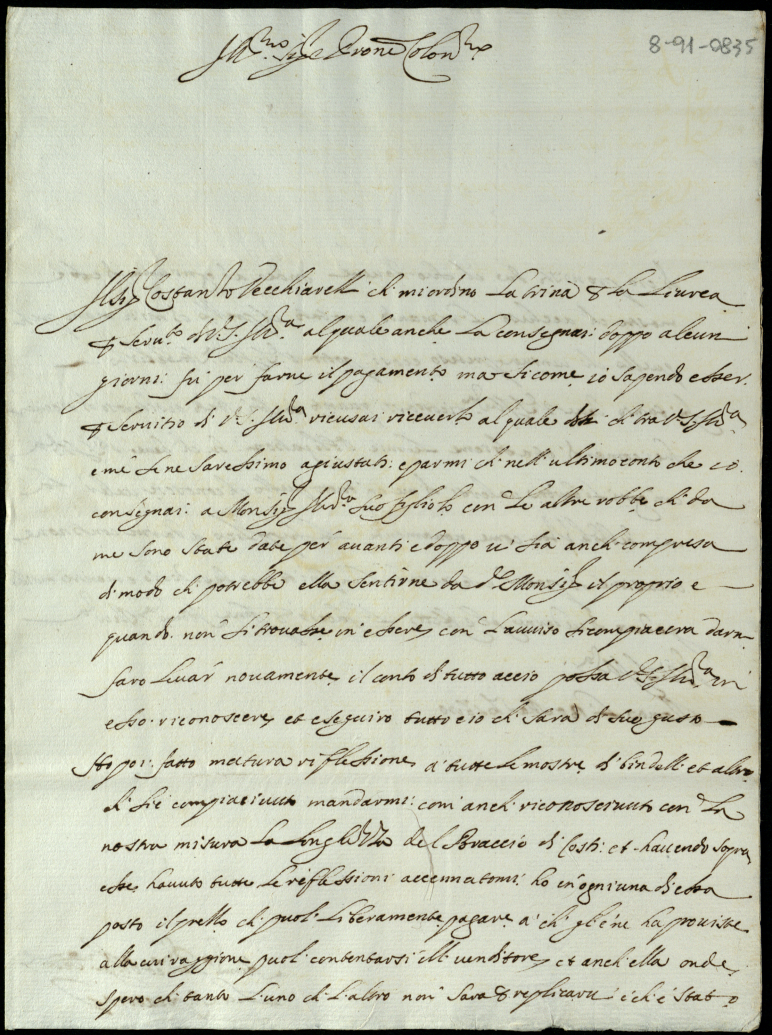 8-91-0835
Ill.mo Sig.r e Prone Colen.mo
Il Sig.r Costanzo Vecchiarelli ch mi ordino La trina p La Liurea
p Seru.to di V.S. Ill.ma al quale anche La consegnai: doppo alcuni
giorni fu per farne il pagamento ma Si come io Sapendo esser
p Seruitio di V.S. Ill.ma ricusai riceuerlo al quale ch tra V.S. Ill.ma
e me Se ne Saressimo agiustati: e parmi ch nell'ultimo conto che io
consegnai a Monsig.r Ill.mo Suo figliolo con Le altre robbe ch da
me Sono State date per auanti e doppo ui Sia anch compresa
di modo ch potrebbe ella Sentirne da d.o Monsig.r il proprio e
quando non Si trouasse in essere con L'auuiso Si compiacera darne
faro Leuar nouamente il conto di tutto accio possa V.S. Ill.ma in
esso riconoscere et eseguiro tutto cio ch Sara di Suo gusto
Ho poi fatto matura riflessione a tutte Le mostre di bindelli et altro
ch Si è compiaciuto mandarmi: com'anch riconosciuto con La
nostra misura La Longhezza del Braccio di Costi: et hauendo Sopra
esse hauuto tutte Le riflessioni accennatomi ho in ogni una di essa
posto il prezzo ch puol Liberamente pagare a chi gl'ene ha prouiste
alla cui raggione puol contentarsi il uenditore et anch ella onde
Spero ch tanto L'uno ch L'altro non Sara p replicarui è ch è Stato